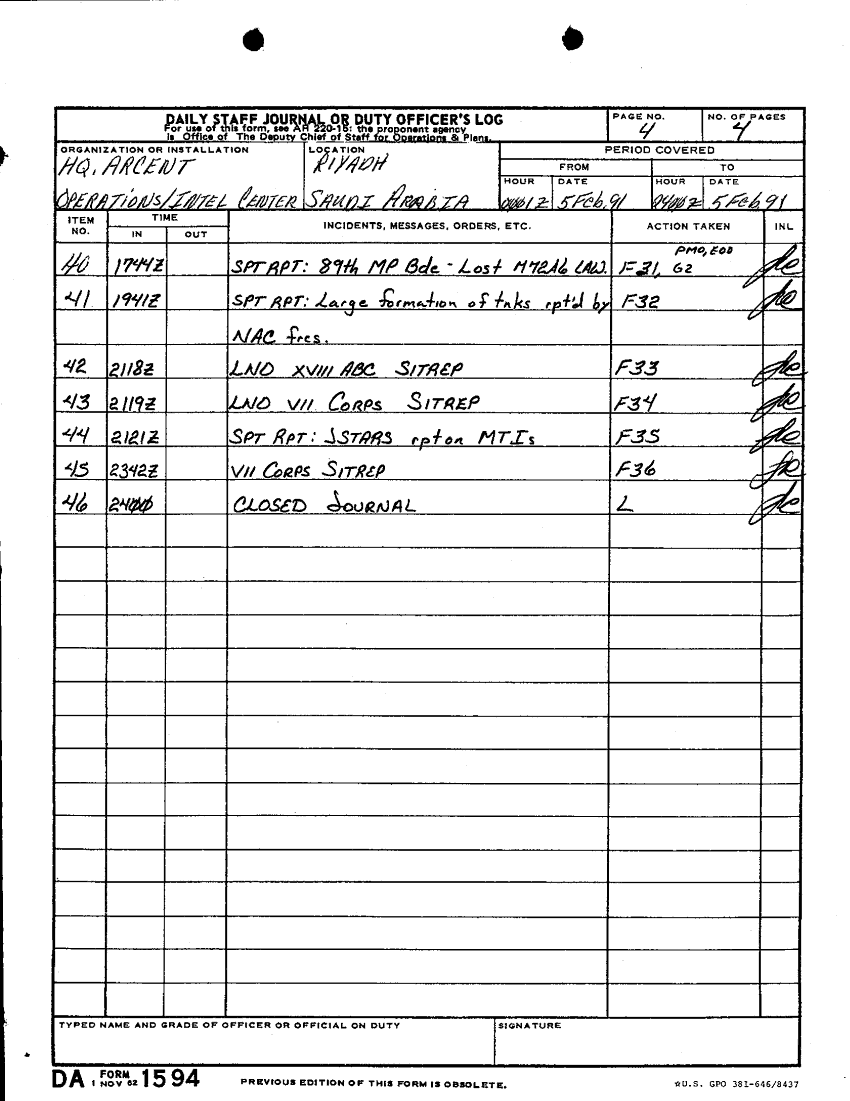 DAILY STAFF JOURNAL OR DUTY OFFICER'S LOG
For use of this form, see AR 220-15: the proponent agency
is Office of The Deputy Chief of Staff for Operations & Plans.
PAGE NO.
4
NO. OF PAGES
4
ORGANIZATION OR INSTALLATION
HQ, ARCENT
OPERATIONS/INTEL CENTER
LOCATION
RIYADH
SAUDI ARABIA
PERIOD COVERED
FROM TO
HOUR DATE HOUR DATE
0001Z 5 Feb, 91 2400Z 5 Feb 91
ITEM NO. TIME IN OUT INCIDENTS, MESSAGES, ORDERS, ETC. ACTION TAKEN INL
PMO, EOD
40 1744Z SPT RPT: 89th MP Bde - Lost M72A6 LAW. F31, G2
41 1941Z SPT RPT: Large formation of tnks rpt'd by F32
NAC frcs.
42 2118Z LNO XVIII ABC SITREP F33
43 2119Z LNO VII CORPS SITREP F34
44 2121Z SPT RPT: JSTARS rpt on MTIs F35
45 2342Z VII CORPS SITREP F36
46 2400 CLOSED JOURNAL L
TYPED NAME AND GRADE OF OFFICER OR OFFICIAL ON DUTY SIGNATURE
DA FORM 1 NOV 62 1594 PREVIOUS EDITION OF THIS FORM IS OBSOLETE. ☆U.S. GPO 381-646/8437